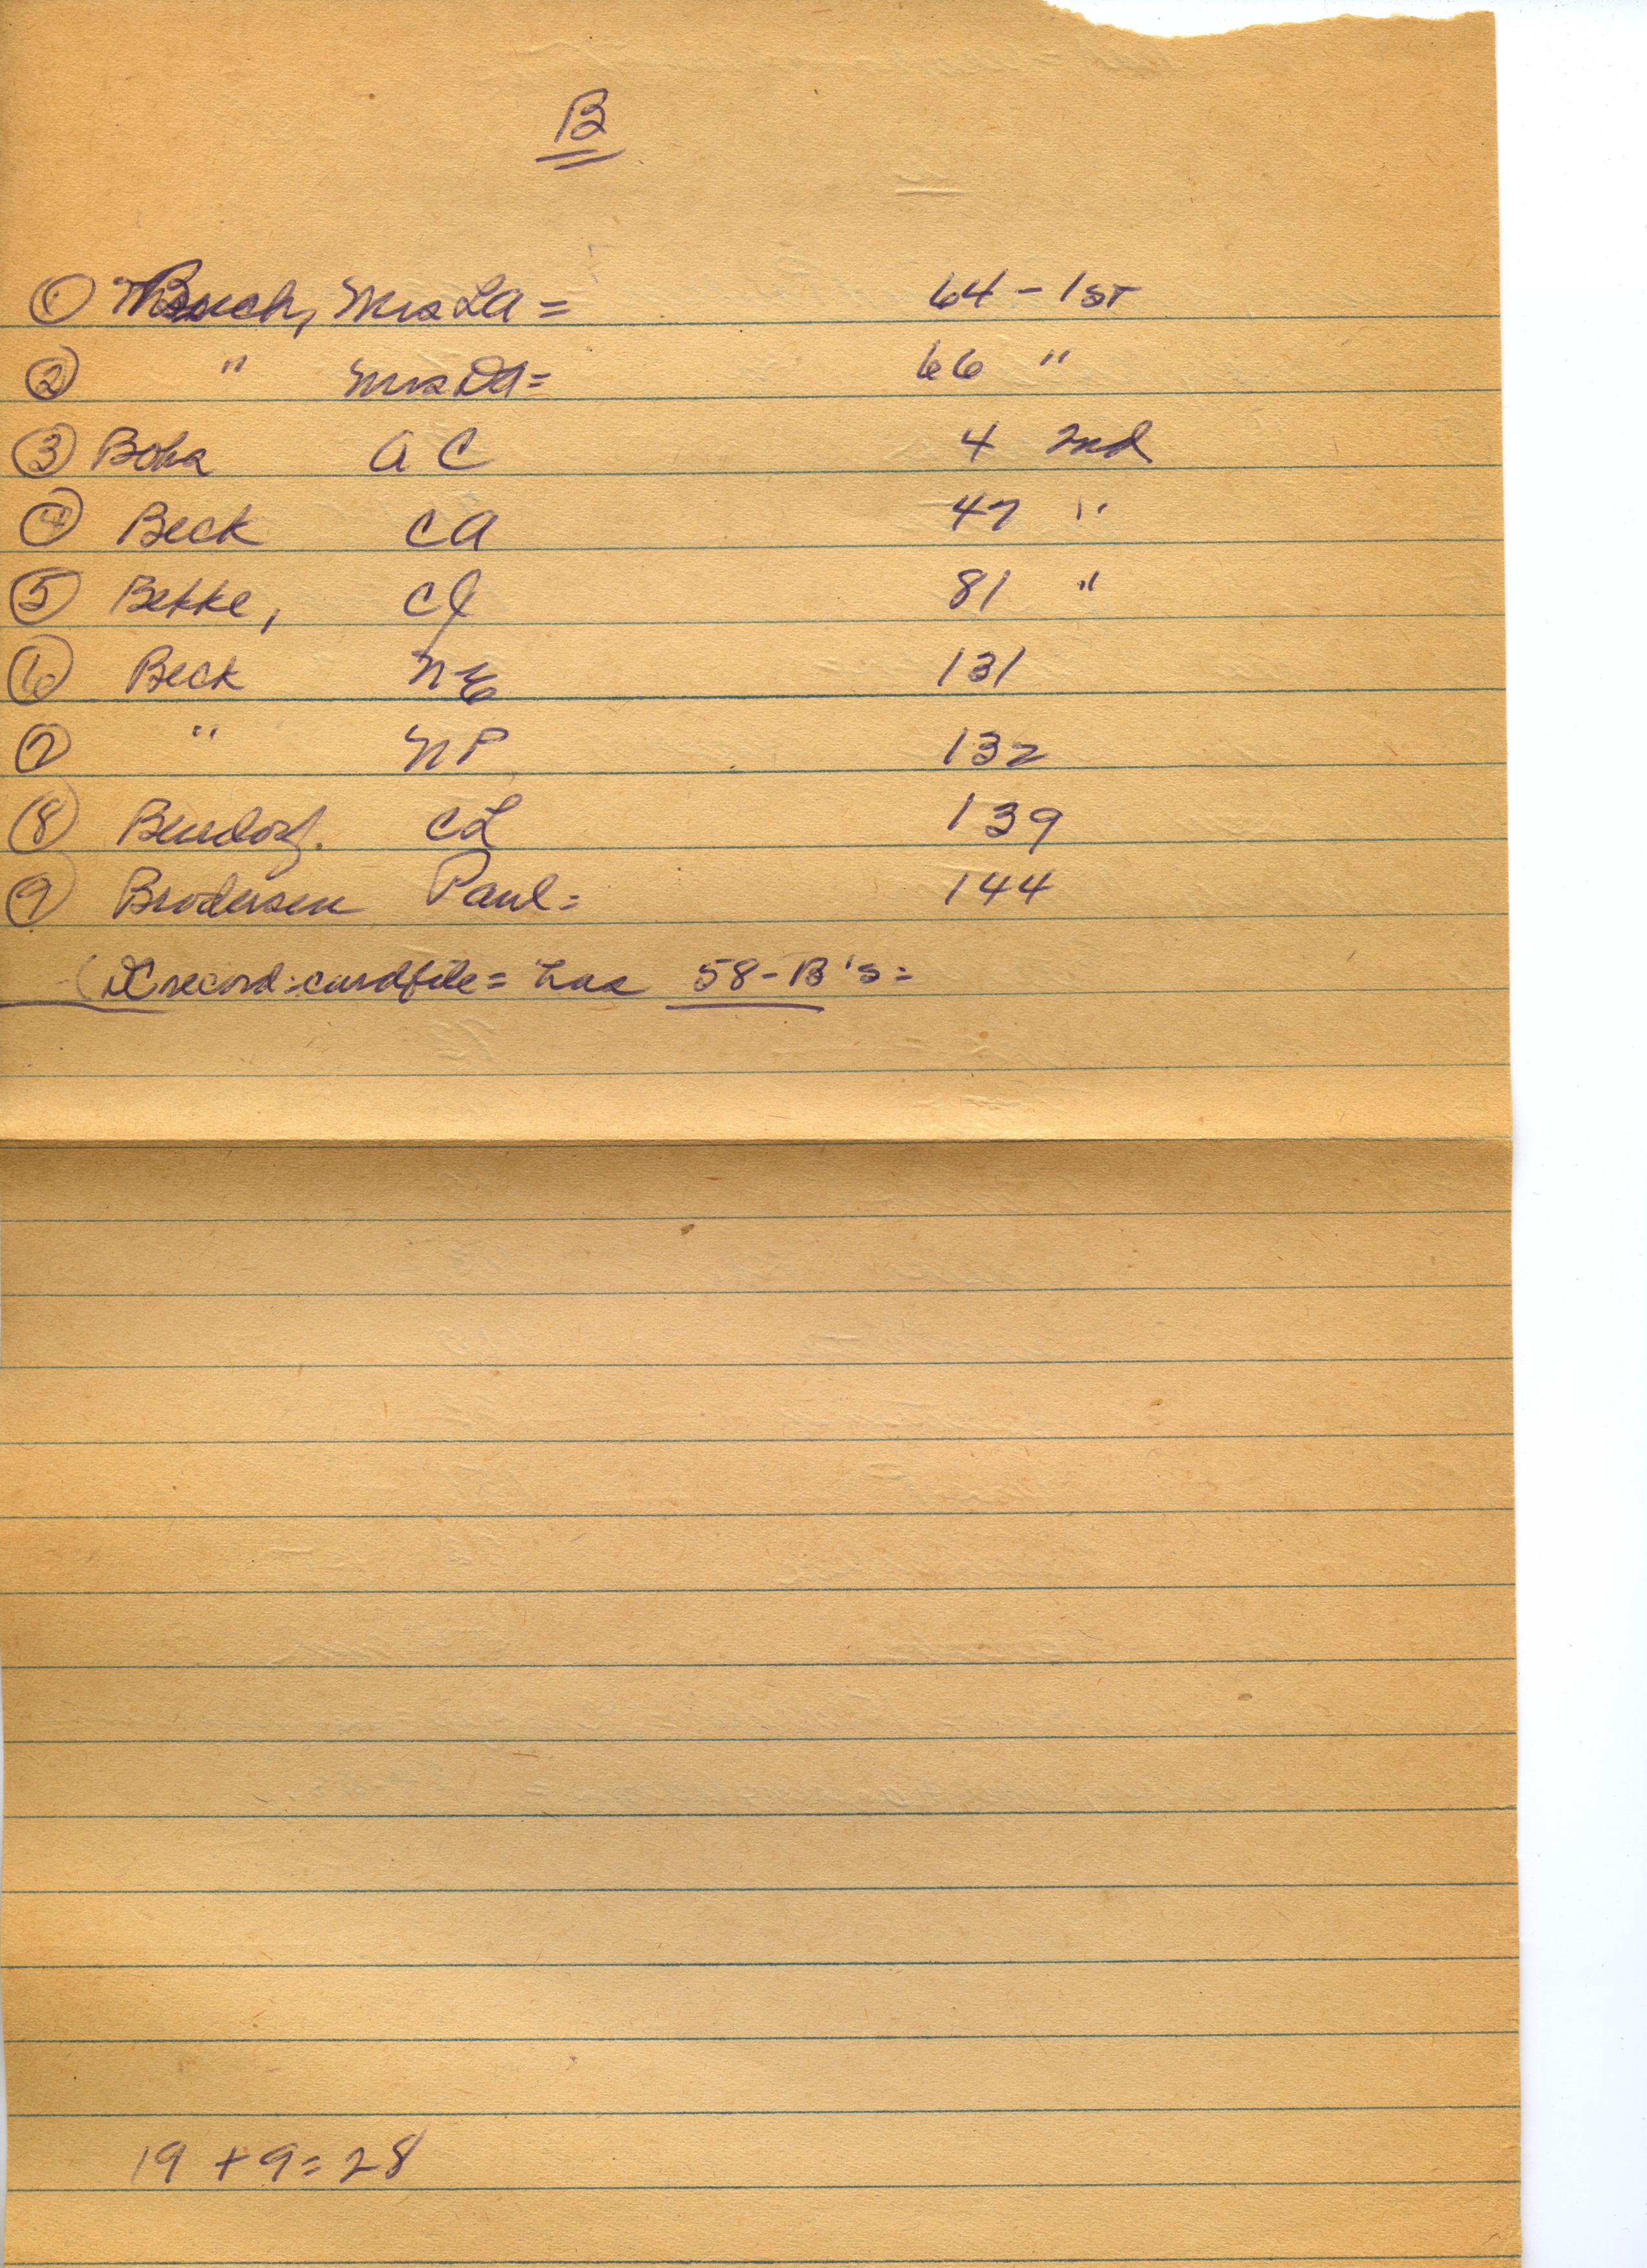 B
① Buch, Mrs LA = 64 - 1st
② " Mrs DA = 66 "
③ Boha A C 4 2nd
④ Beck CA 47 "
⑤ Bekke, CJ 81 "
⑥ Beck NE 131
⑦ " NP 132
⑧ Bendorf. CL 139
⑨ Brodersen Paul = 144
record: cardfile = has 58 - B's =
19 + 9 = 28